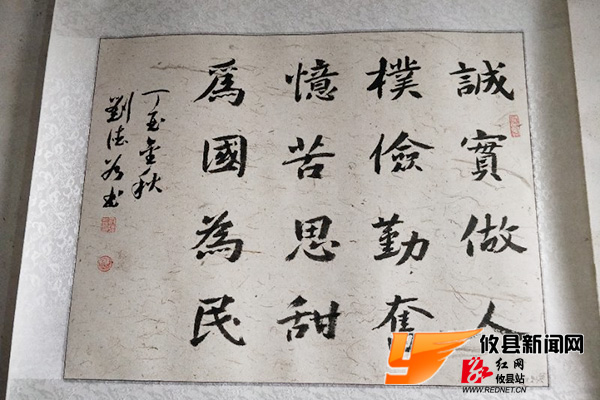 誠實做人
樸儉勤奮
憶苦思甜
爲國為民
丁 金秋
劉德 书
攸县新闻网
红网
攸县站
WWW.REDNET.CN